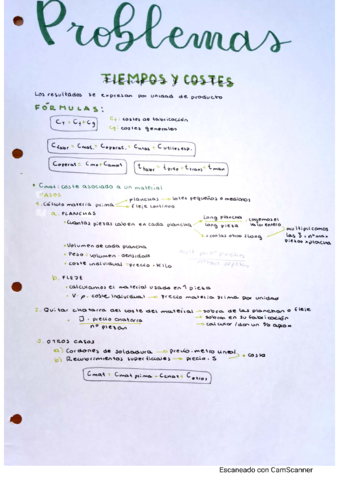 Problemas
TIEMPOS Y COSTES
Los resultados se expresan por unidad de producto
FÓRMULAS:
CT = Cf + Cg
Cf: costes de fabricación
Cg: costes generales
Cfabr = Cmat + Coperat +
Coperat = Cmo + Camot
* Cmat: coste asociado a un material
PASOS
1. Cálculo materia prima
planchas → lotes pequeños o medianos
fleje continuo
a. PLANCHAS
· Cuántas piezas caben en cada plancha
long plancha
long pieza
cogemos el valor entero
multiplicamos
piezas × plancha
· Volumen de cada plancha
· Peso: volumen · densidad
· Coste individual: precio · kilo
b. FLEJE
· Calculamos el material usado en 1 pieza
· V · ρ · coste individual → precio materia prima por unidad
2. Quitar chatarra del coste del material
sobra de las planchas o fleje
sobras en su fabricación
calcular / dan un %
· precio chatarra
nº piezas
3. OTROS CASOS
a) Cordones de soldadura → precio · metro lineal
b) Recubrimientos superficiales → precio · S
→ coste
Cmat = Cmat prima - Cchat + Cotros
Escaneado con CamScanner